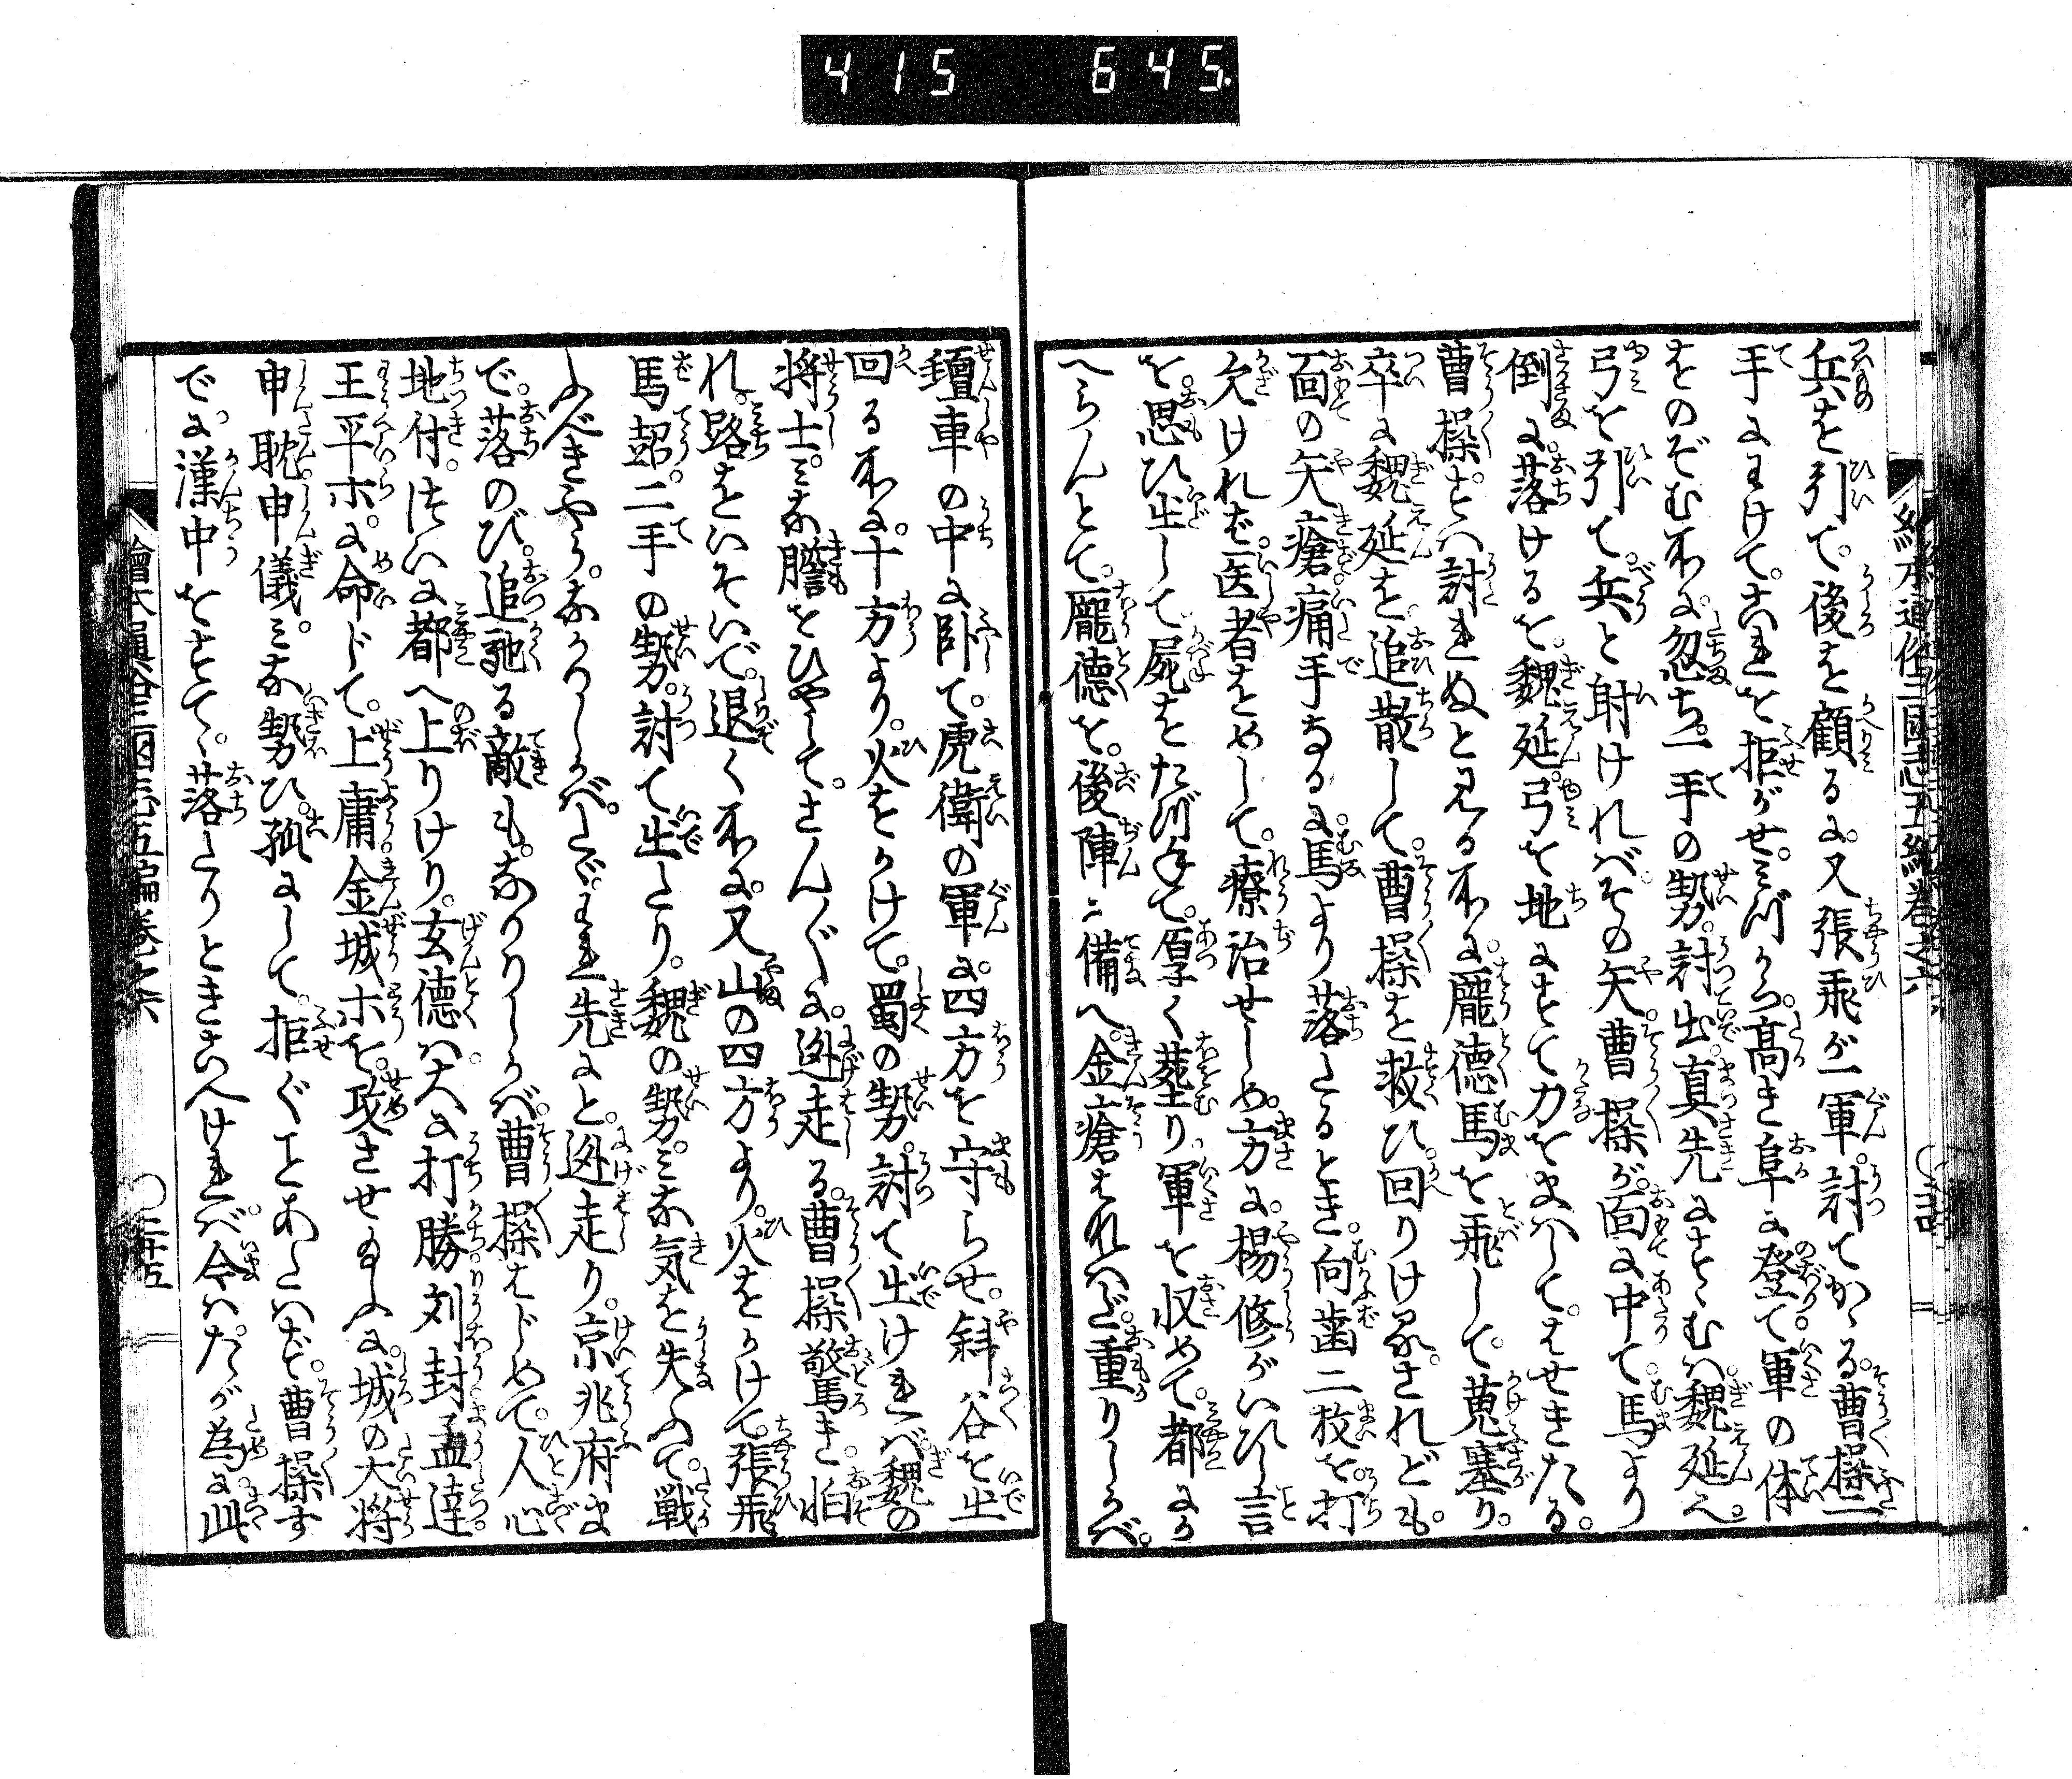 415 645
兵を引て。後を顧るに。又張飛が一軍。討てかゝる。曹操二
手にわけて。これを拒がせ。みづから。高き阜に登て。軍の体
をのぞむ所に。忽ち一手の勢。討出。真先にすゝむは。魏延。
弓を引て。兵と射ければ。その矢。曹操が面に中て。馬より
倒に落けるを。魏延。弓を地にすて力をまはして。はせきたる。
曹操。すでに討れぬと見る所に。龐徳馬を飛して。蒐塞り。
卒に魏延を追散して。曹操を救ひ回りけり。されども。
面の矢瘡。痛手なるに。馬より落たるとき。向歯二枚を。打
欠ければ。医者をめして。療治せしめ。方に。楊修がいひし言
を。思ひ出して。屍をたづねて。厚く葬り。軍を収めて。都にか
へらんとて。龐徳を。後陣ニ備へ。金瘡はなはだ。重りしかば。
氈車の中に臥て。虎衛の軍に。四方を守らせ。斜谷を出
回る所に。十方より。火をかけて。蜀の勢。討て出ければ。魏の
将士。みな膽をひやして。さんざんに。迯走る。曹操驚き。怕
れ。路をいそいで。退く所に。又山の四方より。火をかけて。張飛
馬超。二手の勢。討て出たり。魏の勢。みな気を失ふて。戦
ふべきやう。なかりしかば。たゞ。われ先にと。迯走り。京兆府ま
で。落のび。追馳る敵も。なかりしかば。曹操はじめて。人心
地付。つひに都へ上りけり。玄徳は。大に打勝。劉封孟達。
王平ホに命じて。上庸金城ホを。攻させ給ふに。城の大将
申耽申儀。みな勢ひ。孤にして。拒ぐことあたはず。曹操す
でに漢中をすてゝ。落たりときこへければ。今はたが為に此
繪本通俗三国志五編巻之六 三十五